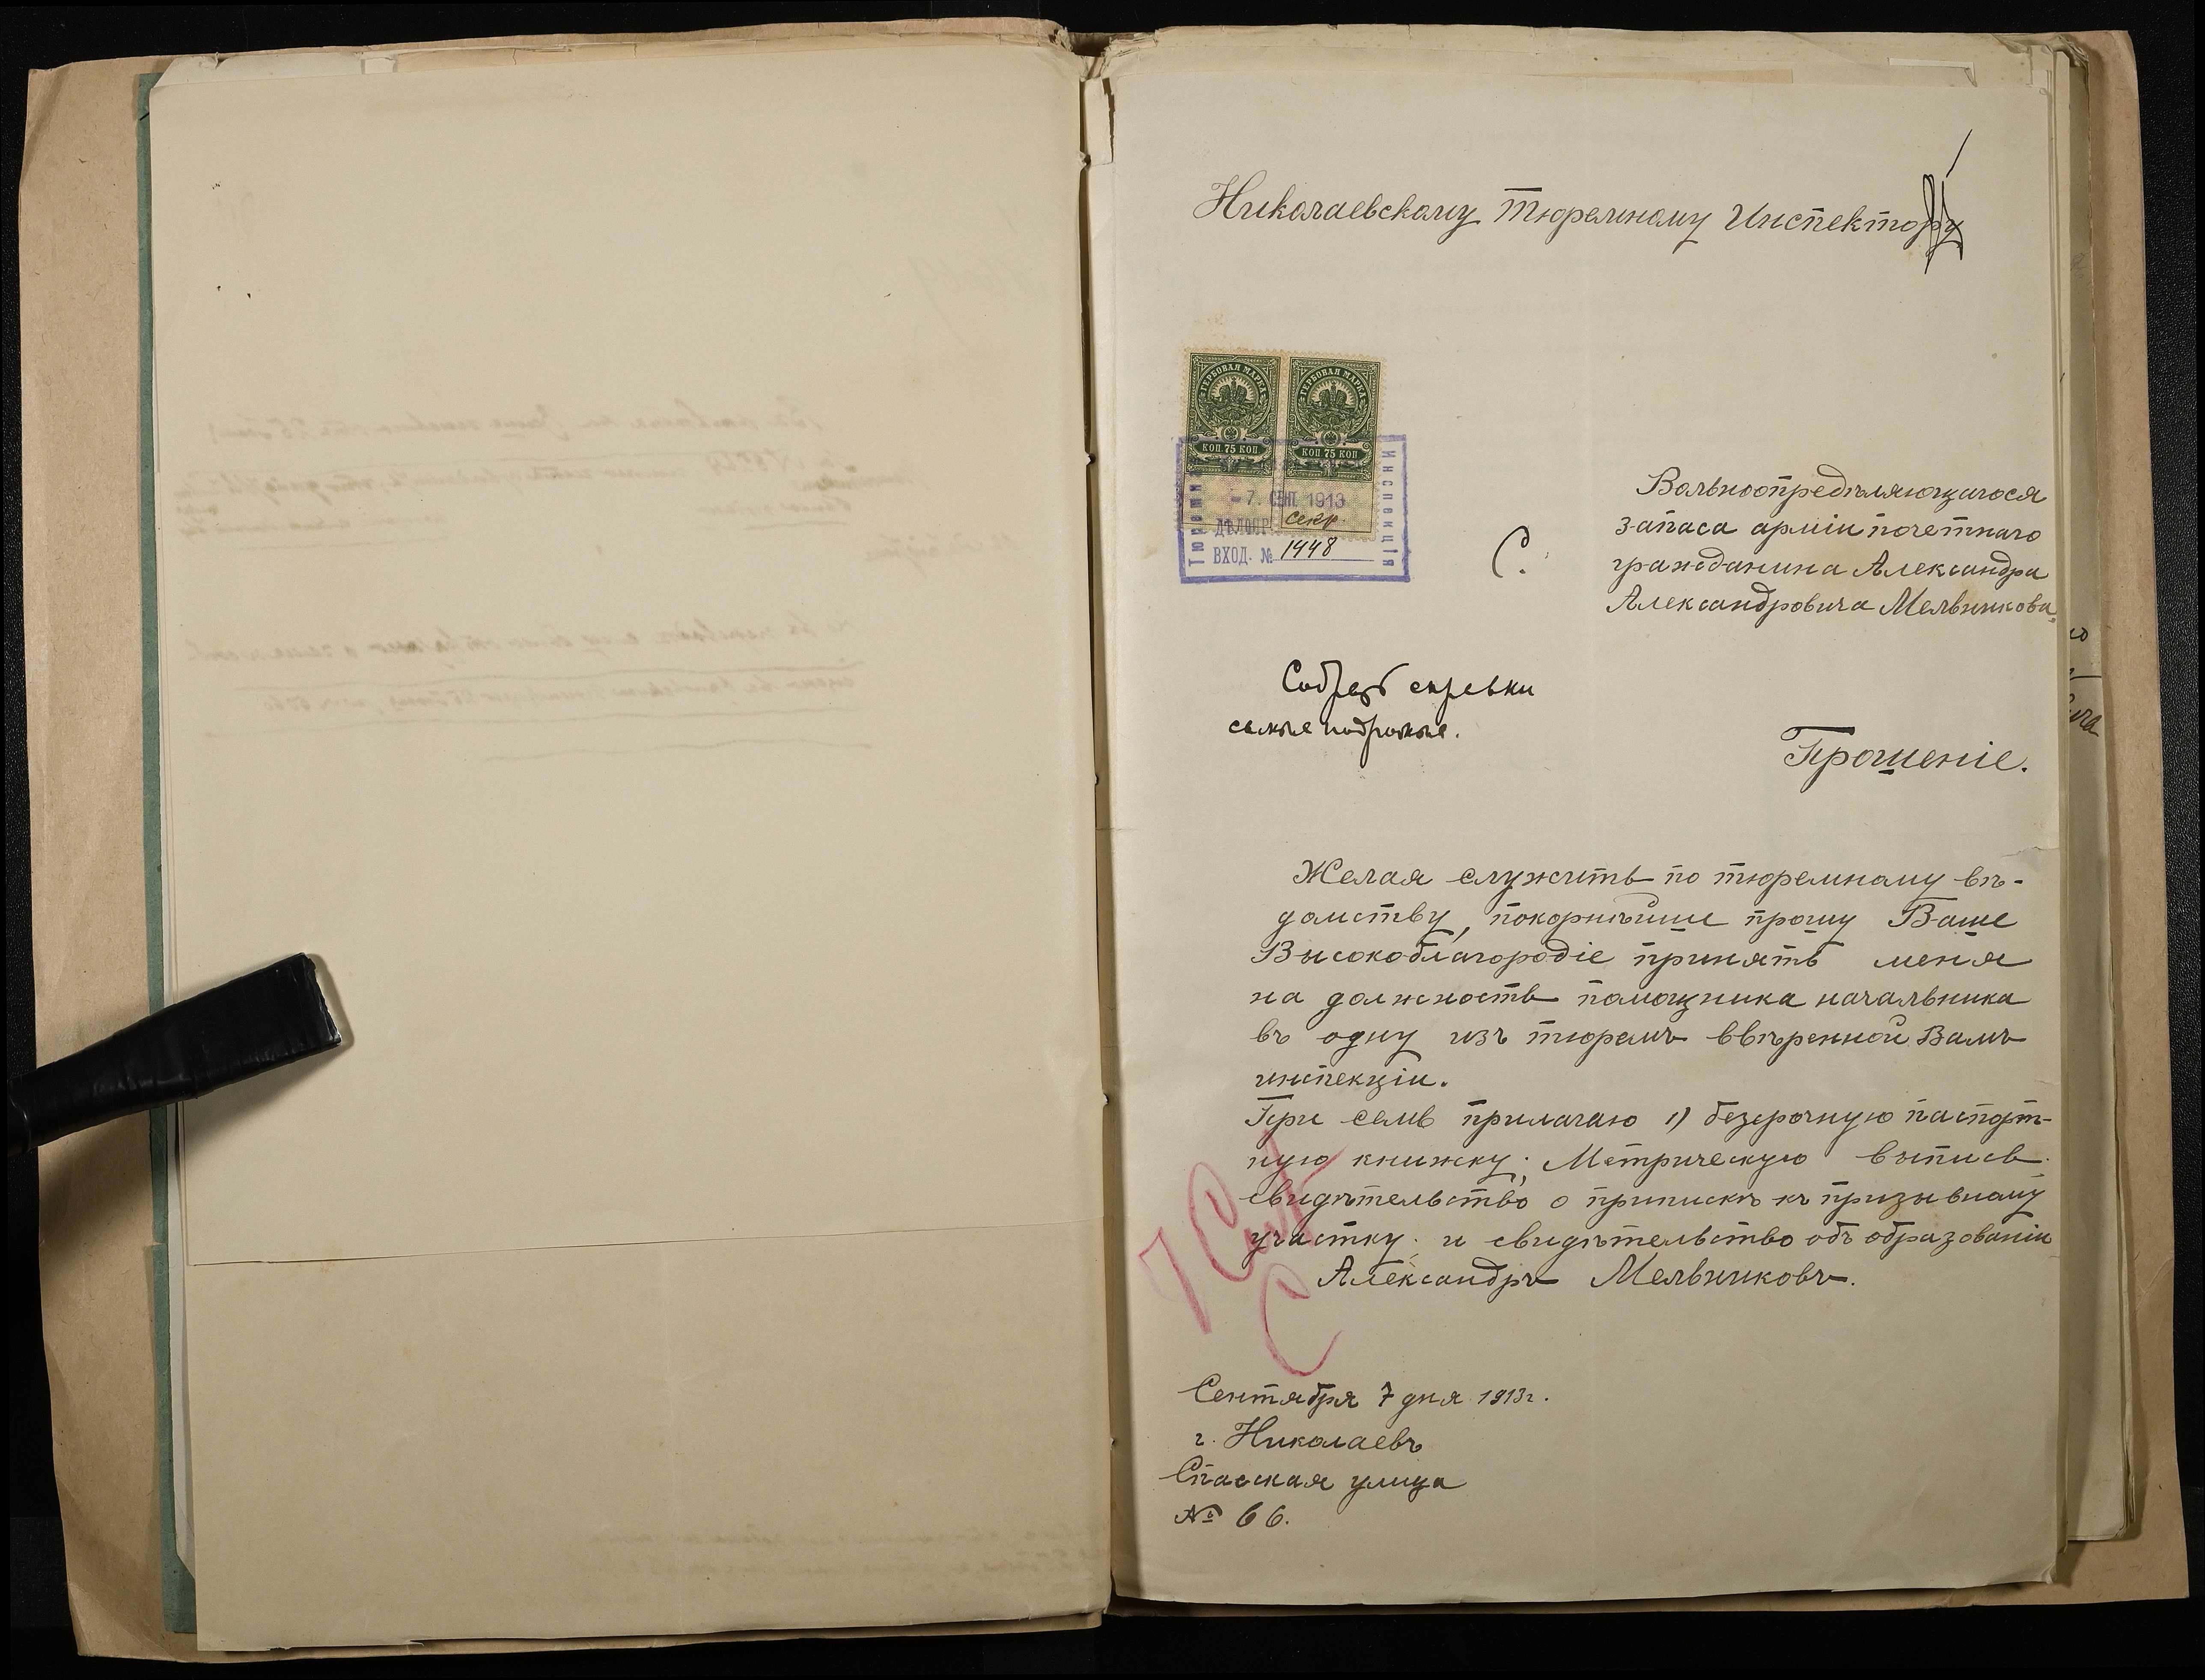 Николаевскому Тюремному Инспектору
ГЕРБОВАЯ МАРКА
ГЕРБОВАЯ МАРКА
КОП. 75 КОП
КОП. 75 КОП
Тюремн
Инспекція
-7. СЕНТ. 1913
ДѢЛОПР. секр.
ВХОД. № 1448
С.
Вольноопредѣляющагося
запаса арміи почетнаго
гражданина Александра
Александровича Мельникова
Собрать справки
самые подробные.
Прошеніе.
Желая служить по тюремному вѣ-
домству, покорнѣйше прошу Ваше
Высокоблагородіе принять меня
на должность помощника начальника
въ одну изъ тюремъ ввѣренной Вамъ
инспекціи.
При семъ прилагаю 1) безсрочную паспорт-
ную книжку; Метрическую выпись
свидѣтельство о припискѣ къ призывному
участку; и свидѣтельство объ образованіи
Александръ Мельниковъ.
Сентября 7 дня 1913г.
г. Николаевъ
Спасская улица
№ 66.